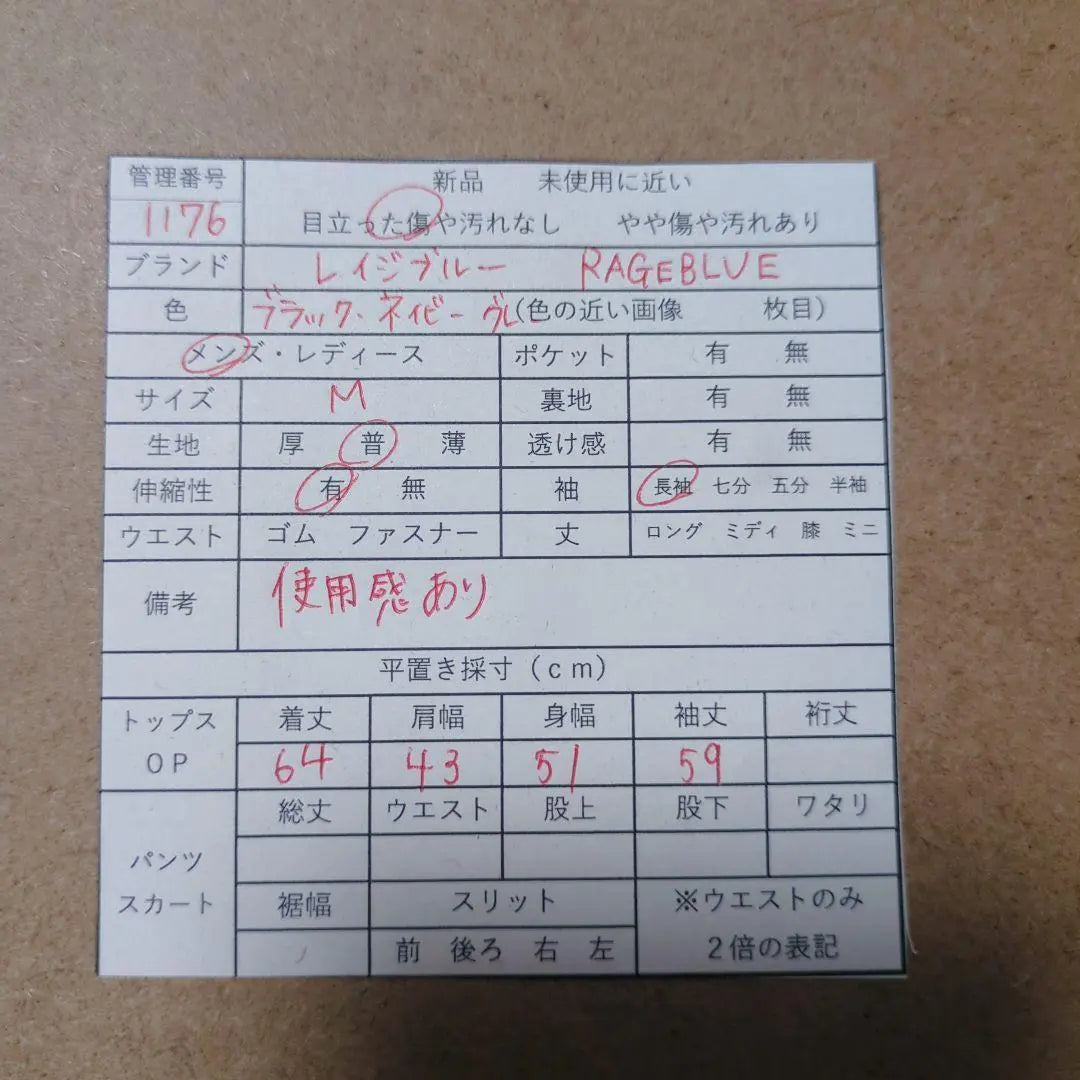 管理番号 新品 未使用に近い
1176 目立った傷や汚れなし やや傷や汚れあり
ブランド レイジブルー RAGEBLUE
色 ブラック・ネイビー (色の近い画像 枚目)
メンズ・レディース ポケット 有 無
サイズ M 裏地 有 無
生地 厚 普 薄 透け感 有 無
伸縮性 有 無 袖 長袖 七分 五分 半袖
ウエスト ゴム ファスナー 丈 ロング ミディ 膝 ミニ
備考 使用感あり
平置き採寸(cm)
トップス 着丈 肩幅 身幅 袖丈 裄丈
OP 64 43 51 59
総丈 ウエスト 股上 股下 ワタリ
パンツ
スカート 裾幅 スリット ※ウエストのみ
前 後ろ 右 左 2倍の表記